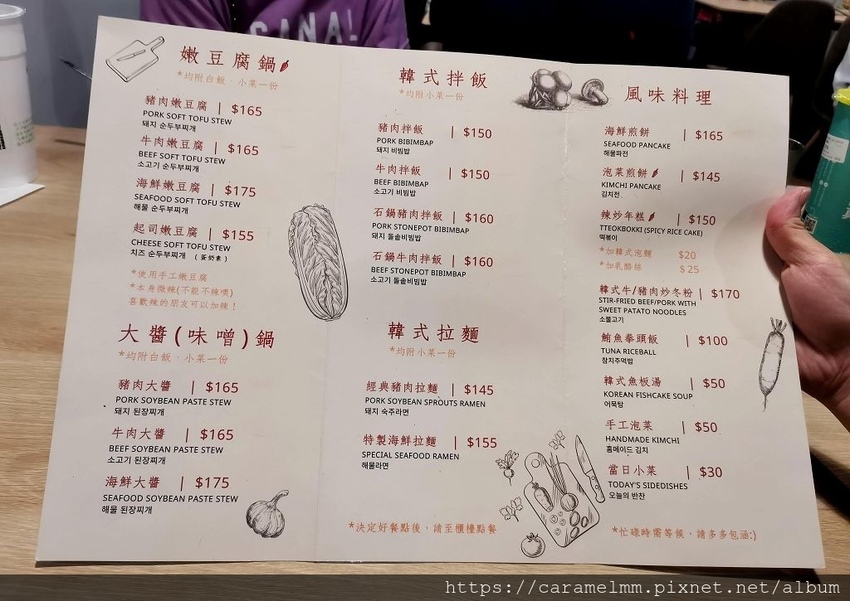 嫩豆腐鍋
*均附白飯‧小菜一份
豬肉嫩豆腐 | $165
PORK SOFT TOFU STEW
돼지 순두부찌개
牛肉嫩豆腐 | $165
BEEF SOFT TOFU STEW
소고기 순두부찌개
海鮮嫩豆腐 | $175
SEAFOOD SOFT TOFU STEW
해물 순두부찌개
起司嫩豆腐 | $155
CHEESE SOFT TOFU STEW
치즈 순두부찌개 (蛋奶素)
*使用手工嫩豆腐
*本身微辣(不能不辣噢)
喜歡辣的朋友可以加辣!
大醬(味噌)鍋
*均附白飯‧小菜一份
豬肉大醬 | $165
PORK SOYBEAN PASTE STEW
돼지 된장찌개
牛肉大醬 | $165
BEEF SOYBEAN PASTE STEW
소고기 된장찌개
海鮮大醬 | $175
SEAFOOD SOYBEAN PASTE STEW
해물 된장찌개
韓式拌飯
*均附小菜一份
豬肉拌飯 | $150
PORK BIBIMBAP
돼지 비빔밥
牛肉拌飯 | $150
BEEF BIBIMBAP
소고기 비빔밥
石鍋豬肉拌飯 | $160
PORK STONEPOT BIBIMBAP
돼지 돌솥비빔밥
石鍋牛肉拌飯 | $160
BEEF STONEPOT BIBIMBAP
소고기 돌솥비빔밥
韓式拉麵
*均附小菜一份
經典豬肉拉麵 | $145
PORK SOYBEAN SPROUTS RAMEN
돼지 숙주라면
特製海鮮拉麵 | $155
SPECIAL SEAFOOD RAMEN
해물라면
*決定好餐點後，請至櫃檯點餐
風味料理
海鮮煎餅 | $165
SEAFOOD PANCAKE
해물파전
泡菜煎餅 | $145
KIMCHI PANCAKE
김치전
辣炒年糕 | $150
TTEOKBOKKI (SPICY RICE CAKE)
떡볶이
*加韓式泡麵 $20
*加乳酪絲 $25
韓式牛/豬肉炒冬粉 | $170
STIR-FRIED BEEF/PORK WITH
SWEET PATATO NOODLES
소불고기
鮪魚拳頭飯 | $100
TUNA RICEBALL
참치주먹밥
韓式魚板湯 | $50
KOREAN FISHCAKE SOUP
어묵탕
手工泡菜 | $50
HANDMADE KIMCHI
홈메이드 김치
當日小菜 | $30
TODAY'S SIDEDISHES
오늘의 반찬
*忙碌時需等候，請多多包涵:)
https://caramelmm.pixnet.net/album